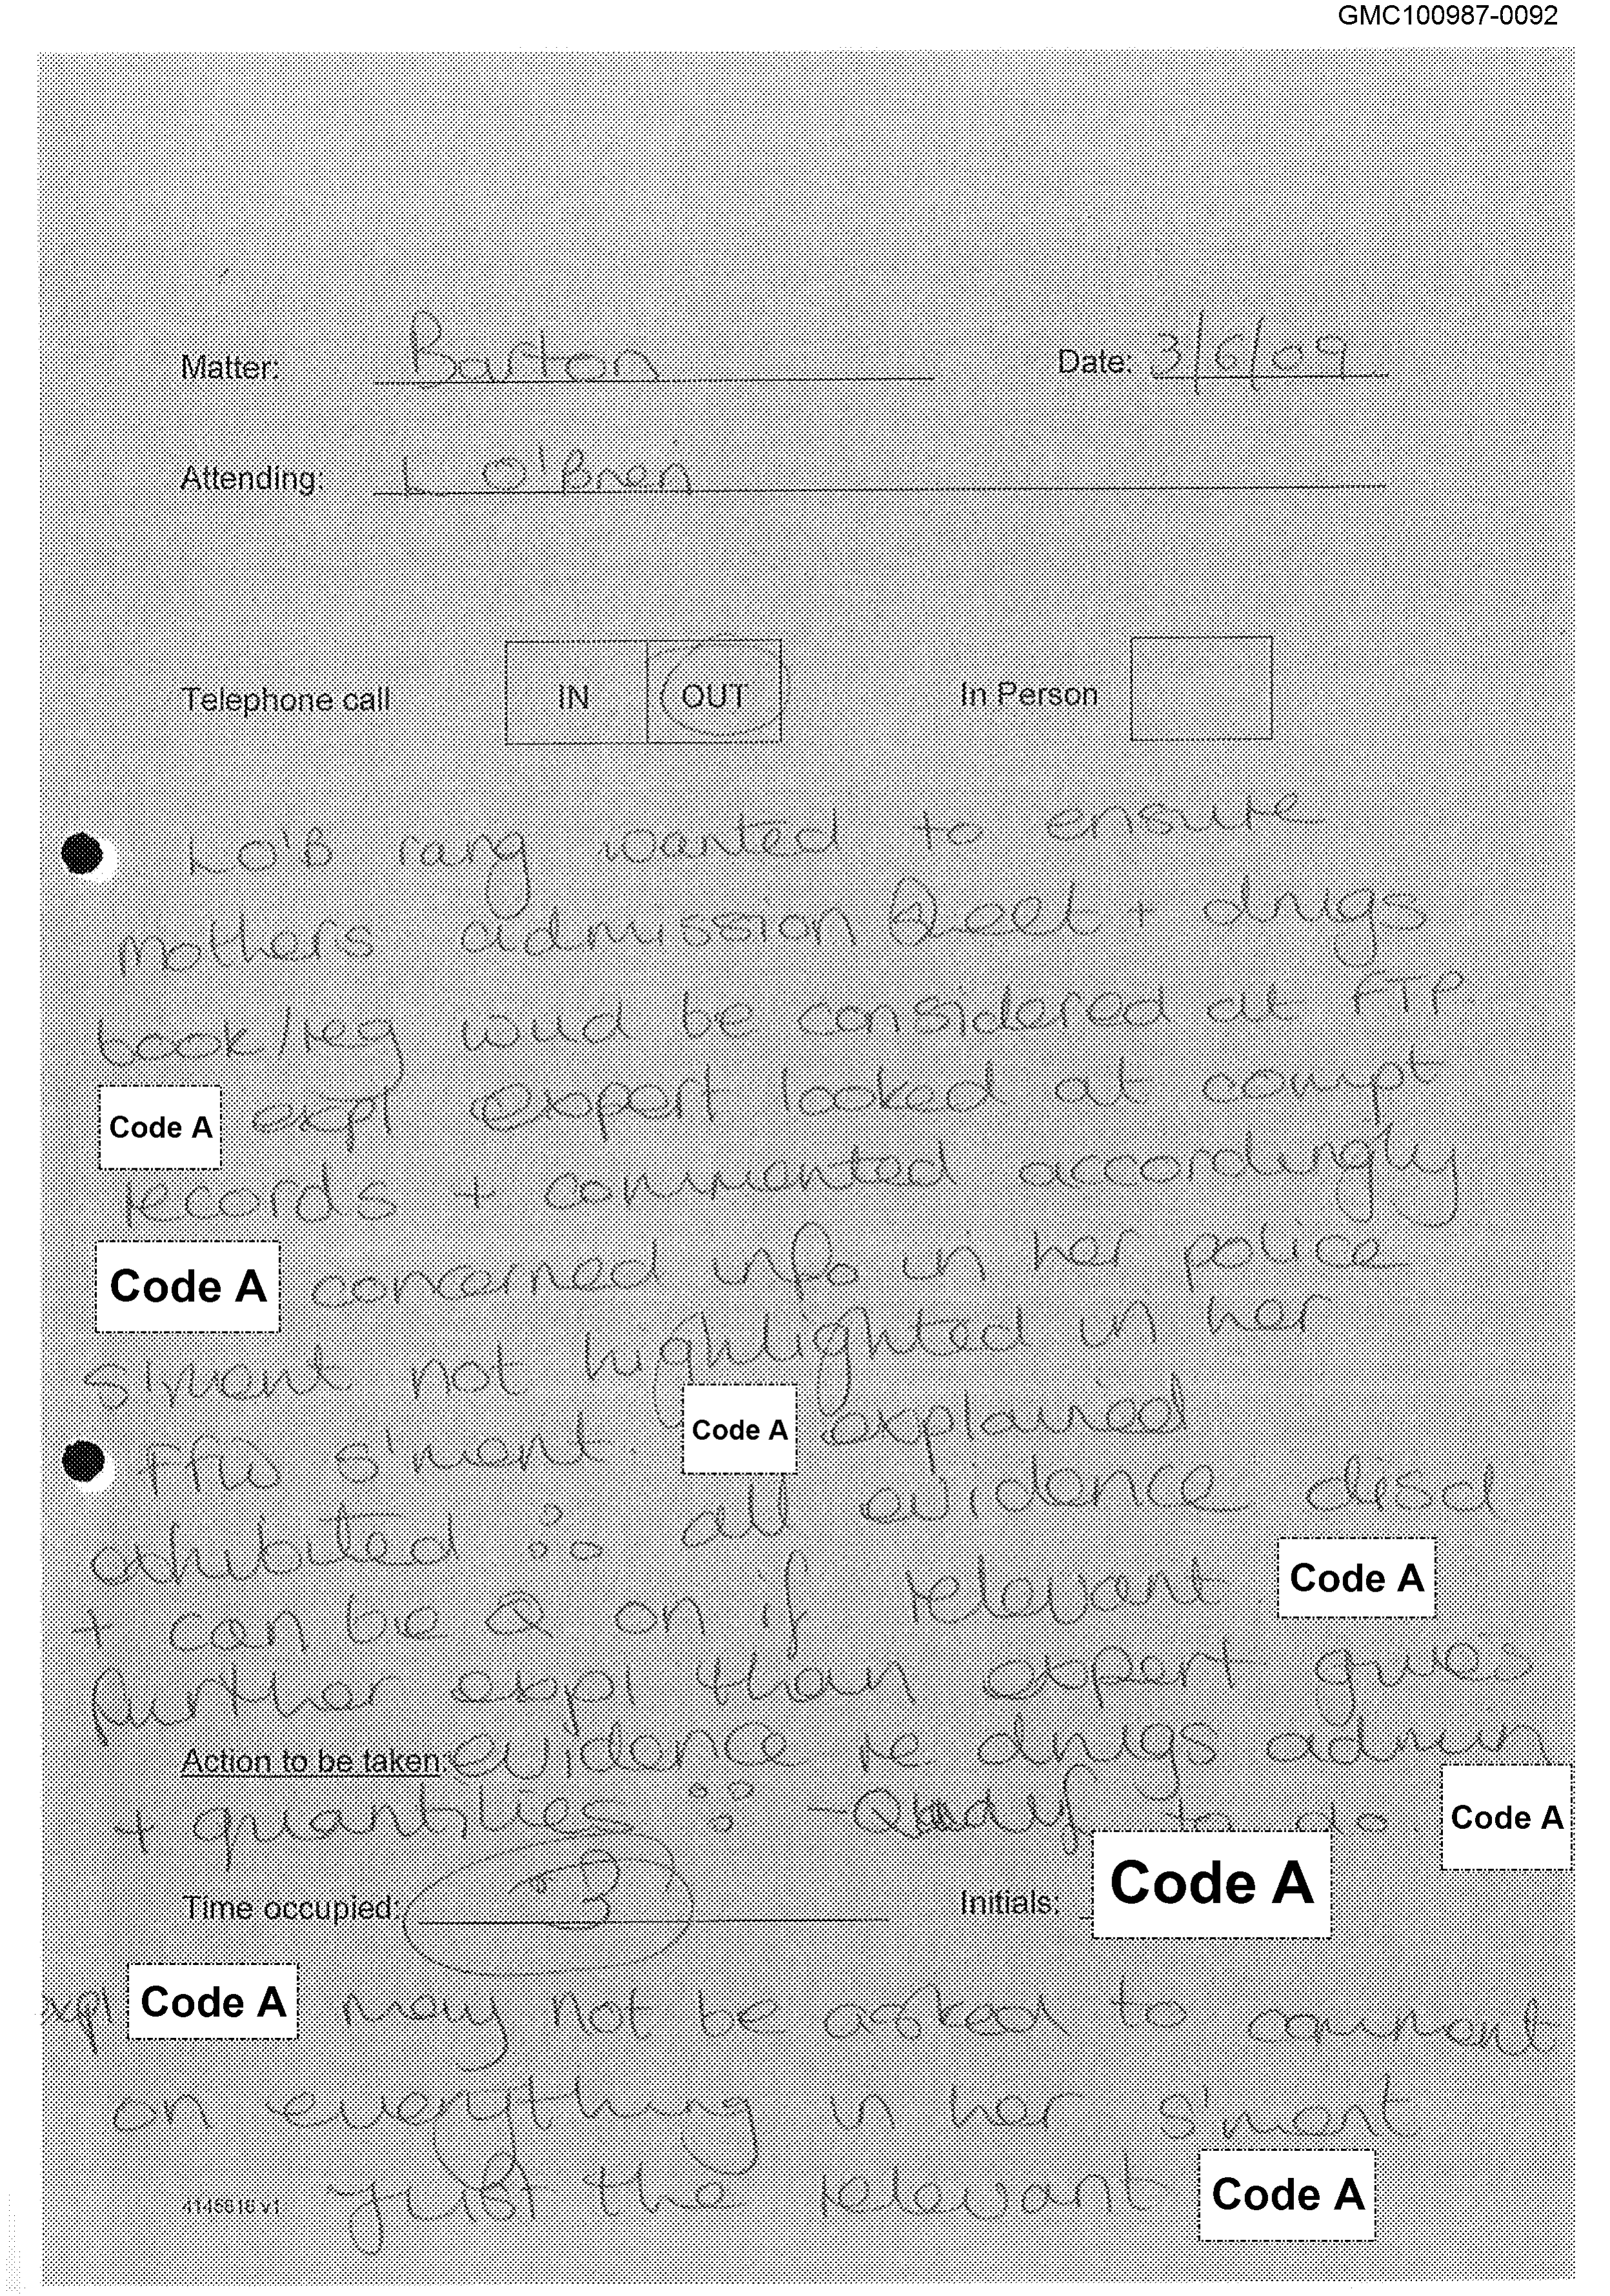 GMC100987-0092
Matter: Barton Date: 3/6/09
Attending: L O'Brien
Telephone call IN OUT In Person
LO'B rang wanted to ensure
mothers admission sheet + drugs
book/reg would be considered at FTP.
Code A expl expert looked at compt
records + commented accordingly
Code A concerned info in her police
s'ment not highlighted in her
FFW s'ment. Code A explained
exhibited ∴ all evidence disd
+ can be Q on if relevant. Code A
further expl than expert gives
Action to be taken: evidence re drugs admin
+ quantities ∵ to do. Code A
Time occupied: 3 Initials: Code A
expl Code A may not be asked to comment
on everything in her s'ment
just the relevant Code A
4145618 v1